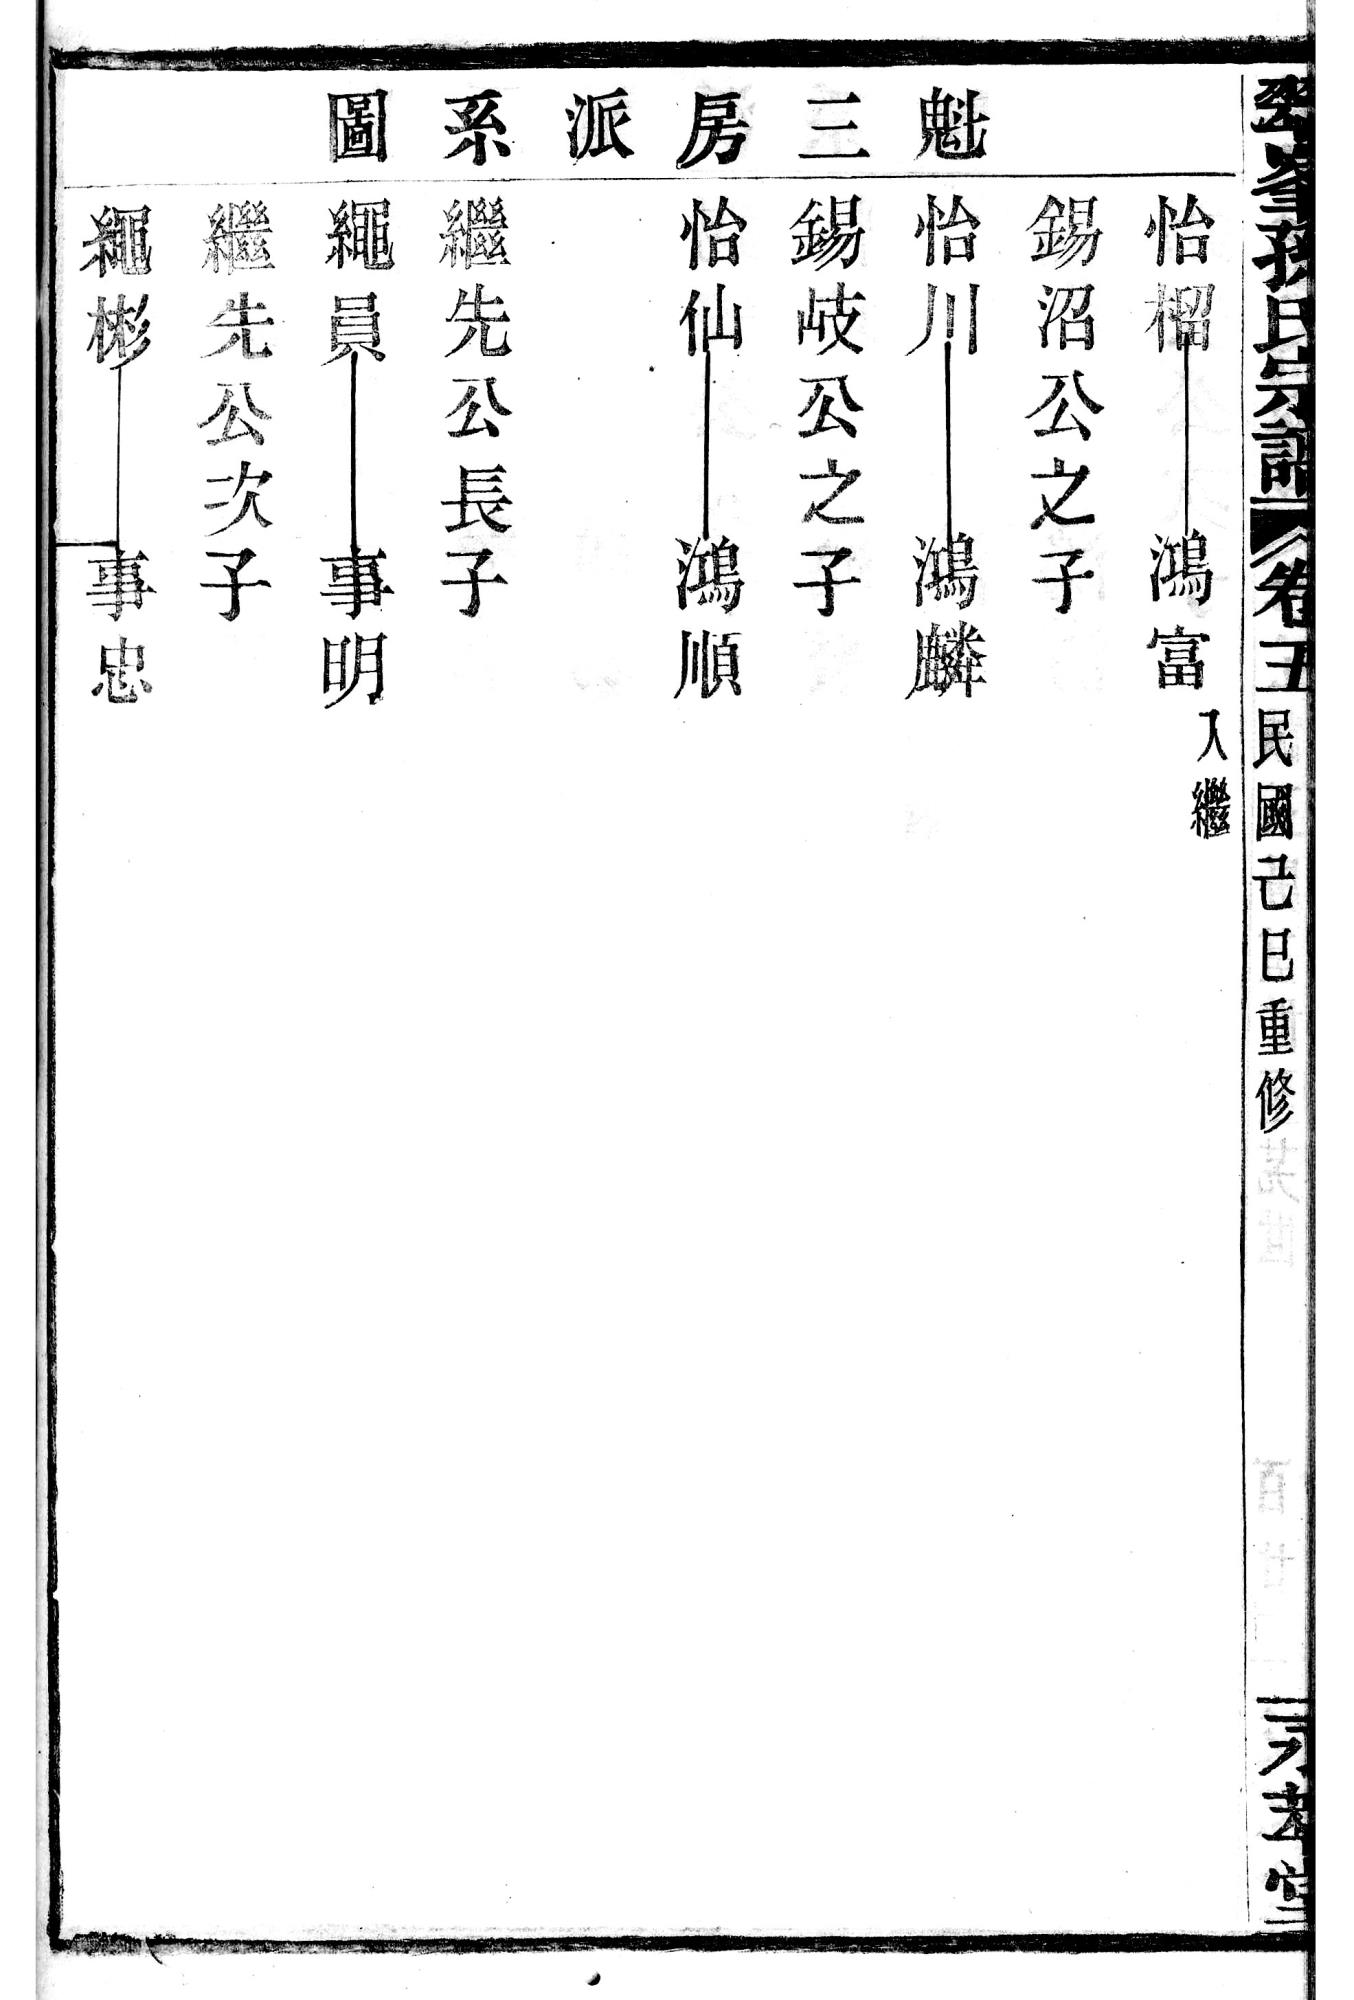 孫氏宗譜 卷五 民國己巳重修
魁三房派系圖
怡榴 鴻富 入繼
錫沼公之子
怡川 鴻麟
錫岐公之子
怡仙 鴻順
繼先公長子
繩員 事明
繼先公次子
繩彬 事忠